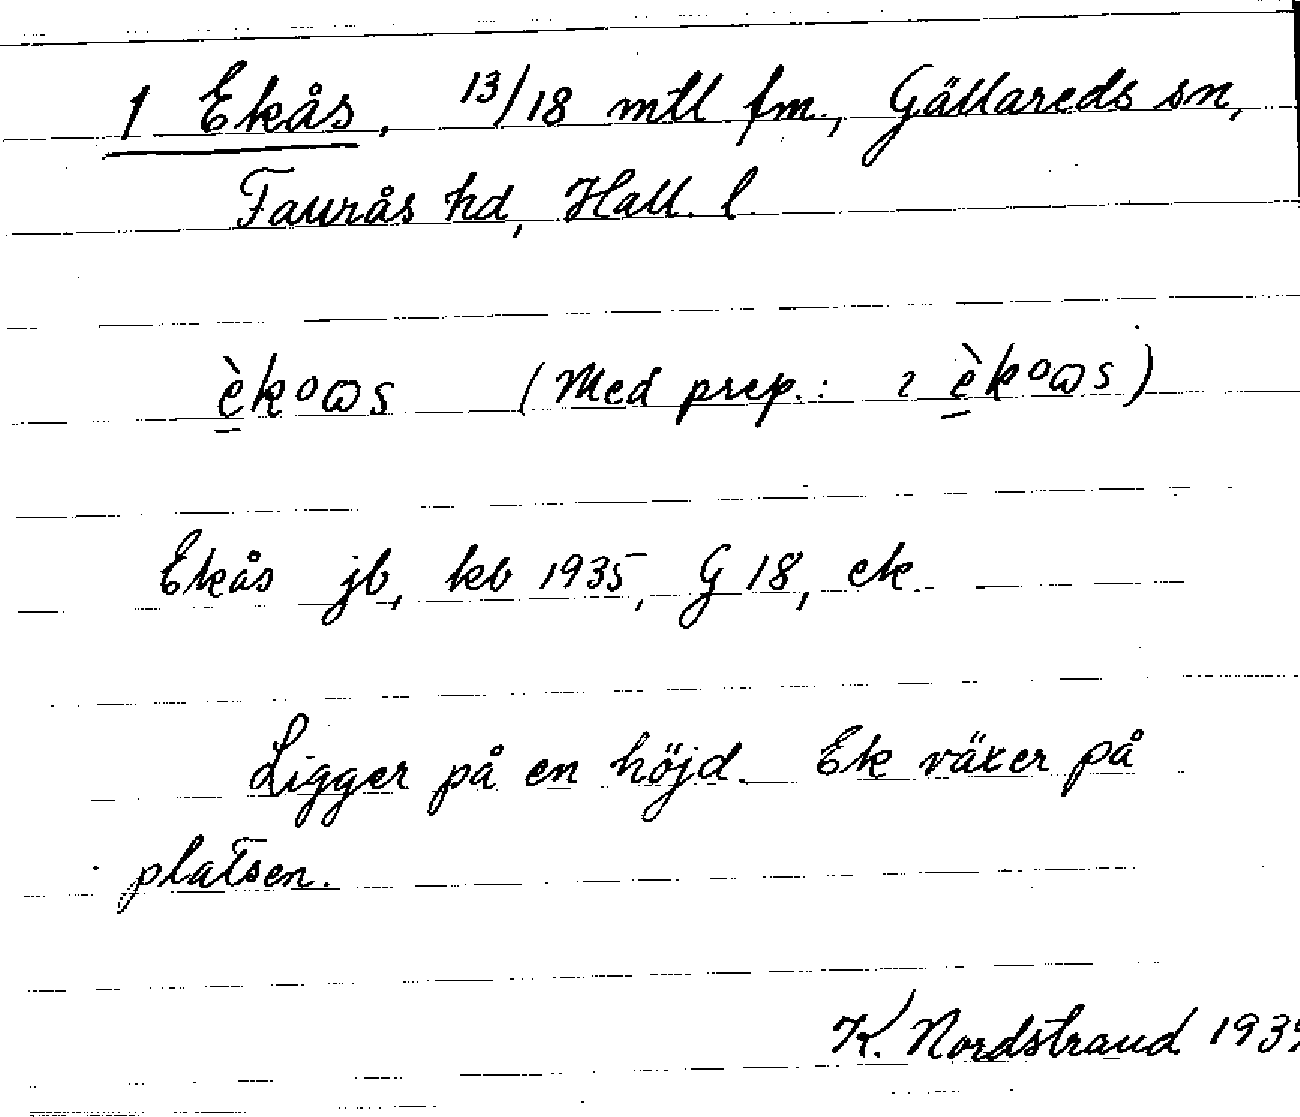 1 Ekås, 13/18 mtl fm., Gällareds sn,
Faurås hd, Hall. l.
è̱kºɷs (Med prep.: ɩ è̱kºɷs)
Ekås jb, kb 1935, G 18, ek.
Ligger på en höjd. Ek växer på
platsen.
K. Nordstrand